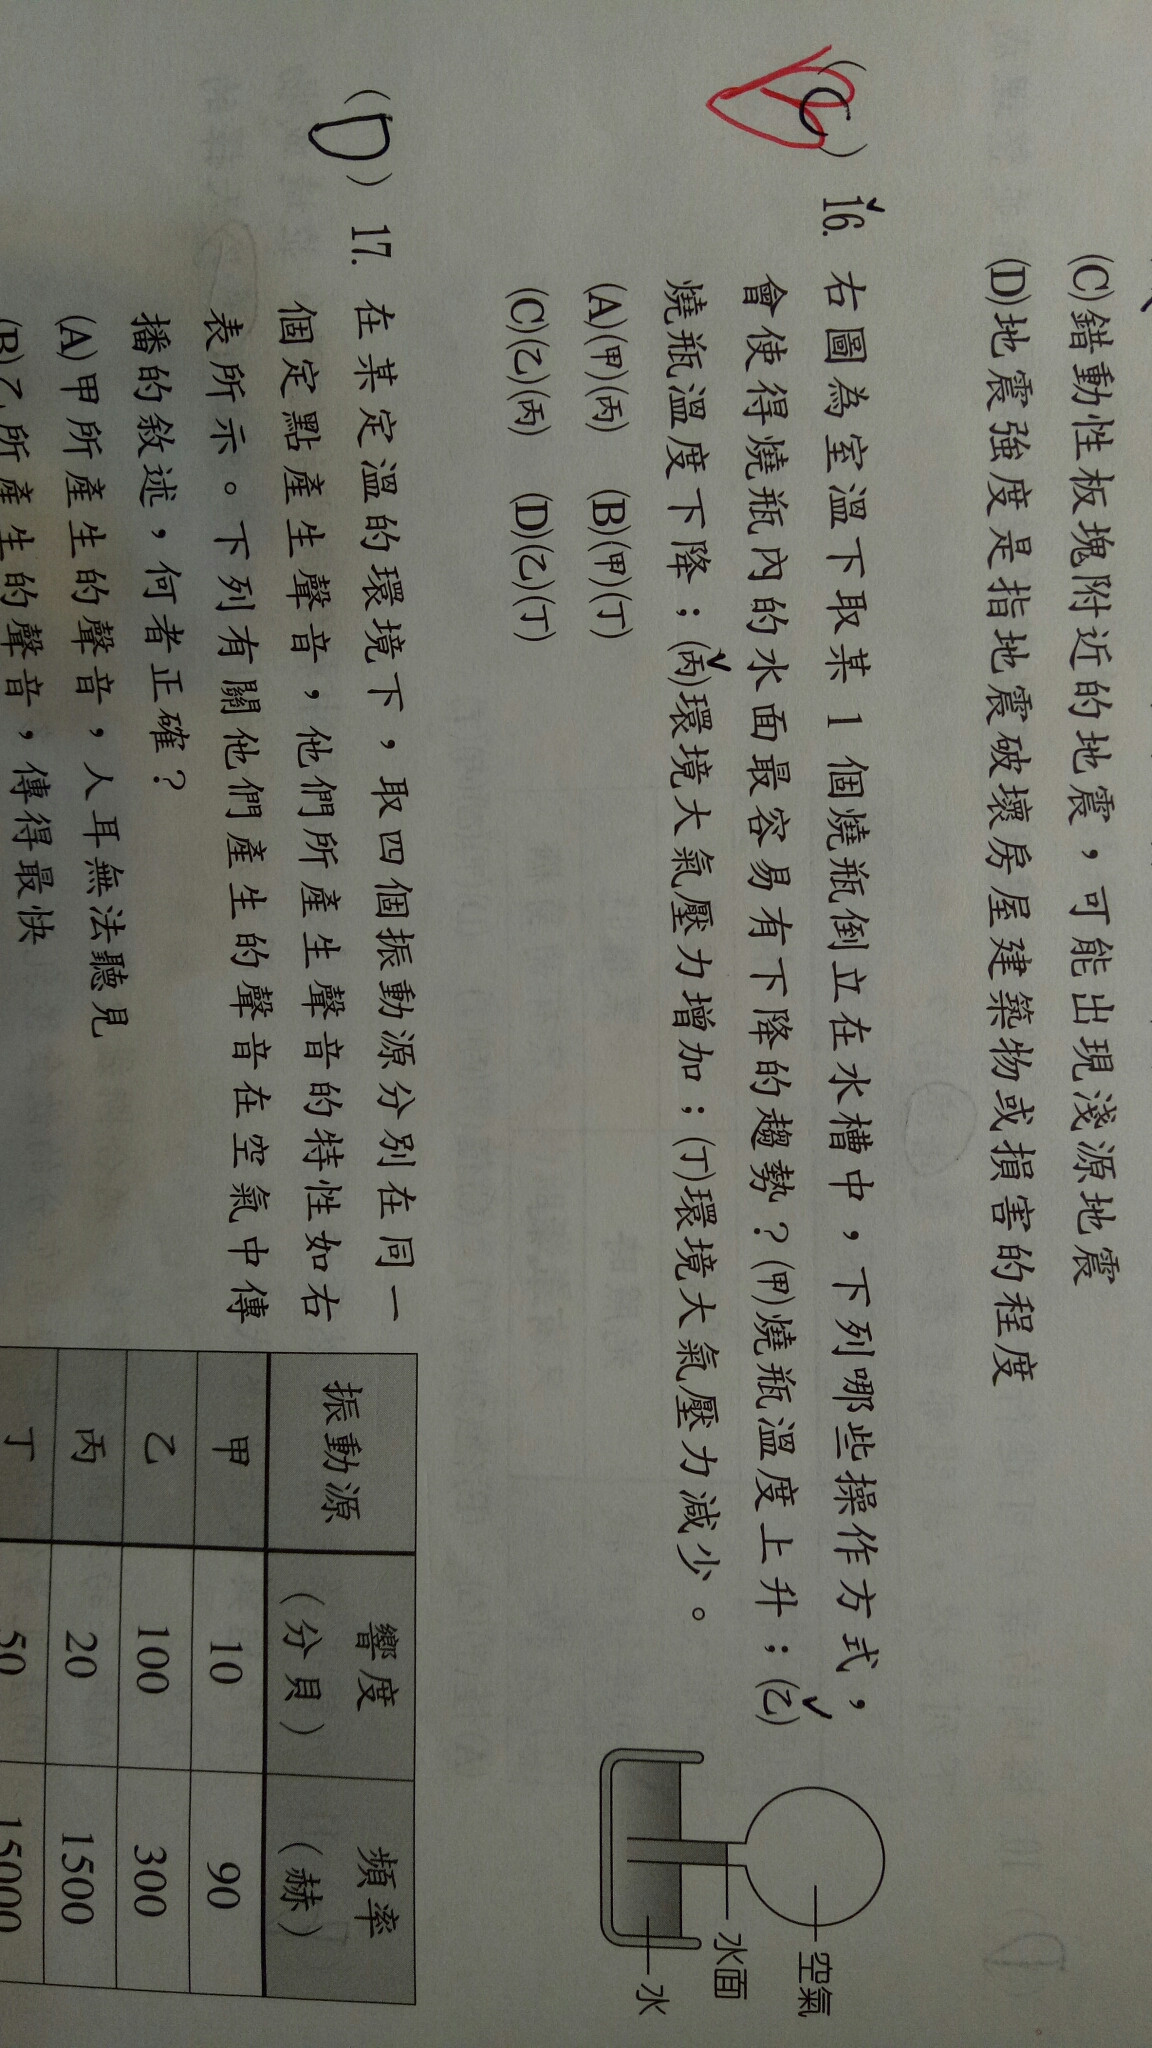 (C)錯動性板塊附近的地震，可能出現淺源地震
(D)地震強度是指地震破壞房屋建築物或損害的程度
(C) 16. 右圖為室溫下取某 1 個燒瓶倒立在水槽中，下列哪些操作方式，
會使得燒瓶內的水面最容易有下降的趨勢？(甲)燒瓶溫度上升；(乙)
燒瓶溫度下降；(丙)環境大氣壓力增加；(丁)環境大氣壓力減少。
(A)(甲)(丙) (B)(甲)(丁)
(C)(乙)(丙) (D)(乙)(丁)
空氣
水面
水
(D) 17. 在某定溫的環境下，取四個振動源分別在同一
個定點產生聲音，他們所產生聲音的特性如右
表所示。下列有關他們產生的聲音在空氣中傳
播的敘述，何者正確？
(A)甲所產生的聲音，人耳無法聽見
(B)乙所產生的聲音，傳得最快
振動源 響度（分貝） 頻率（赫）
甲 10 90
乙 100 300
丙 20 1500
丁 50 15000